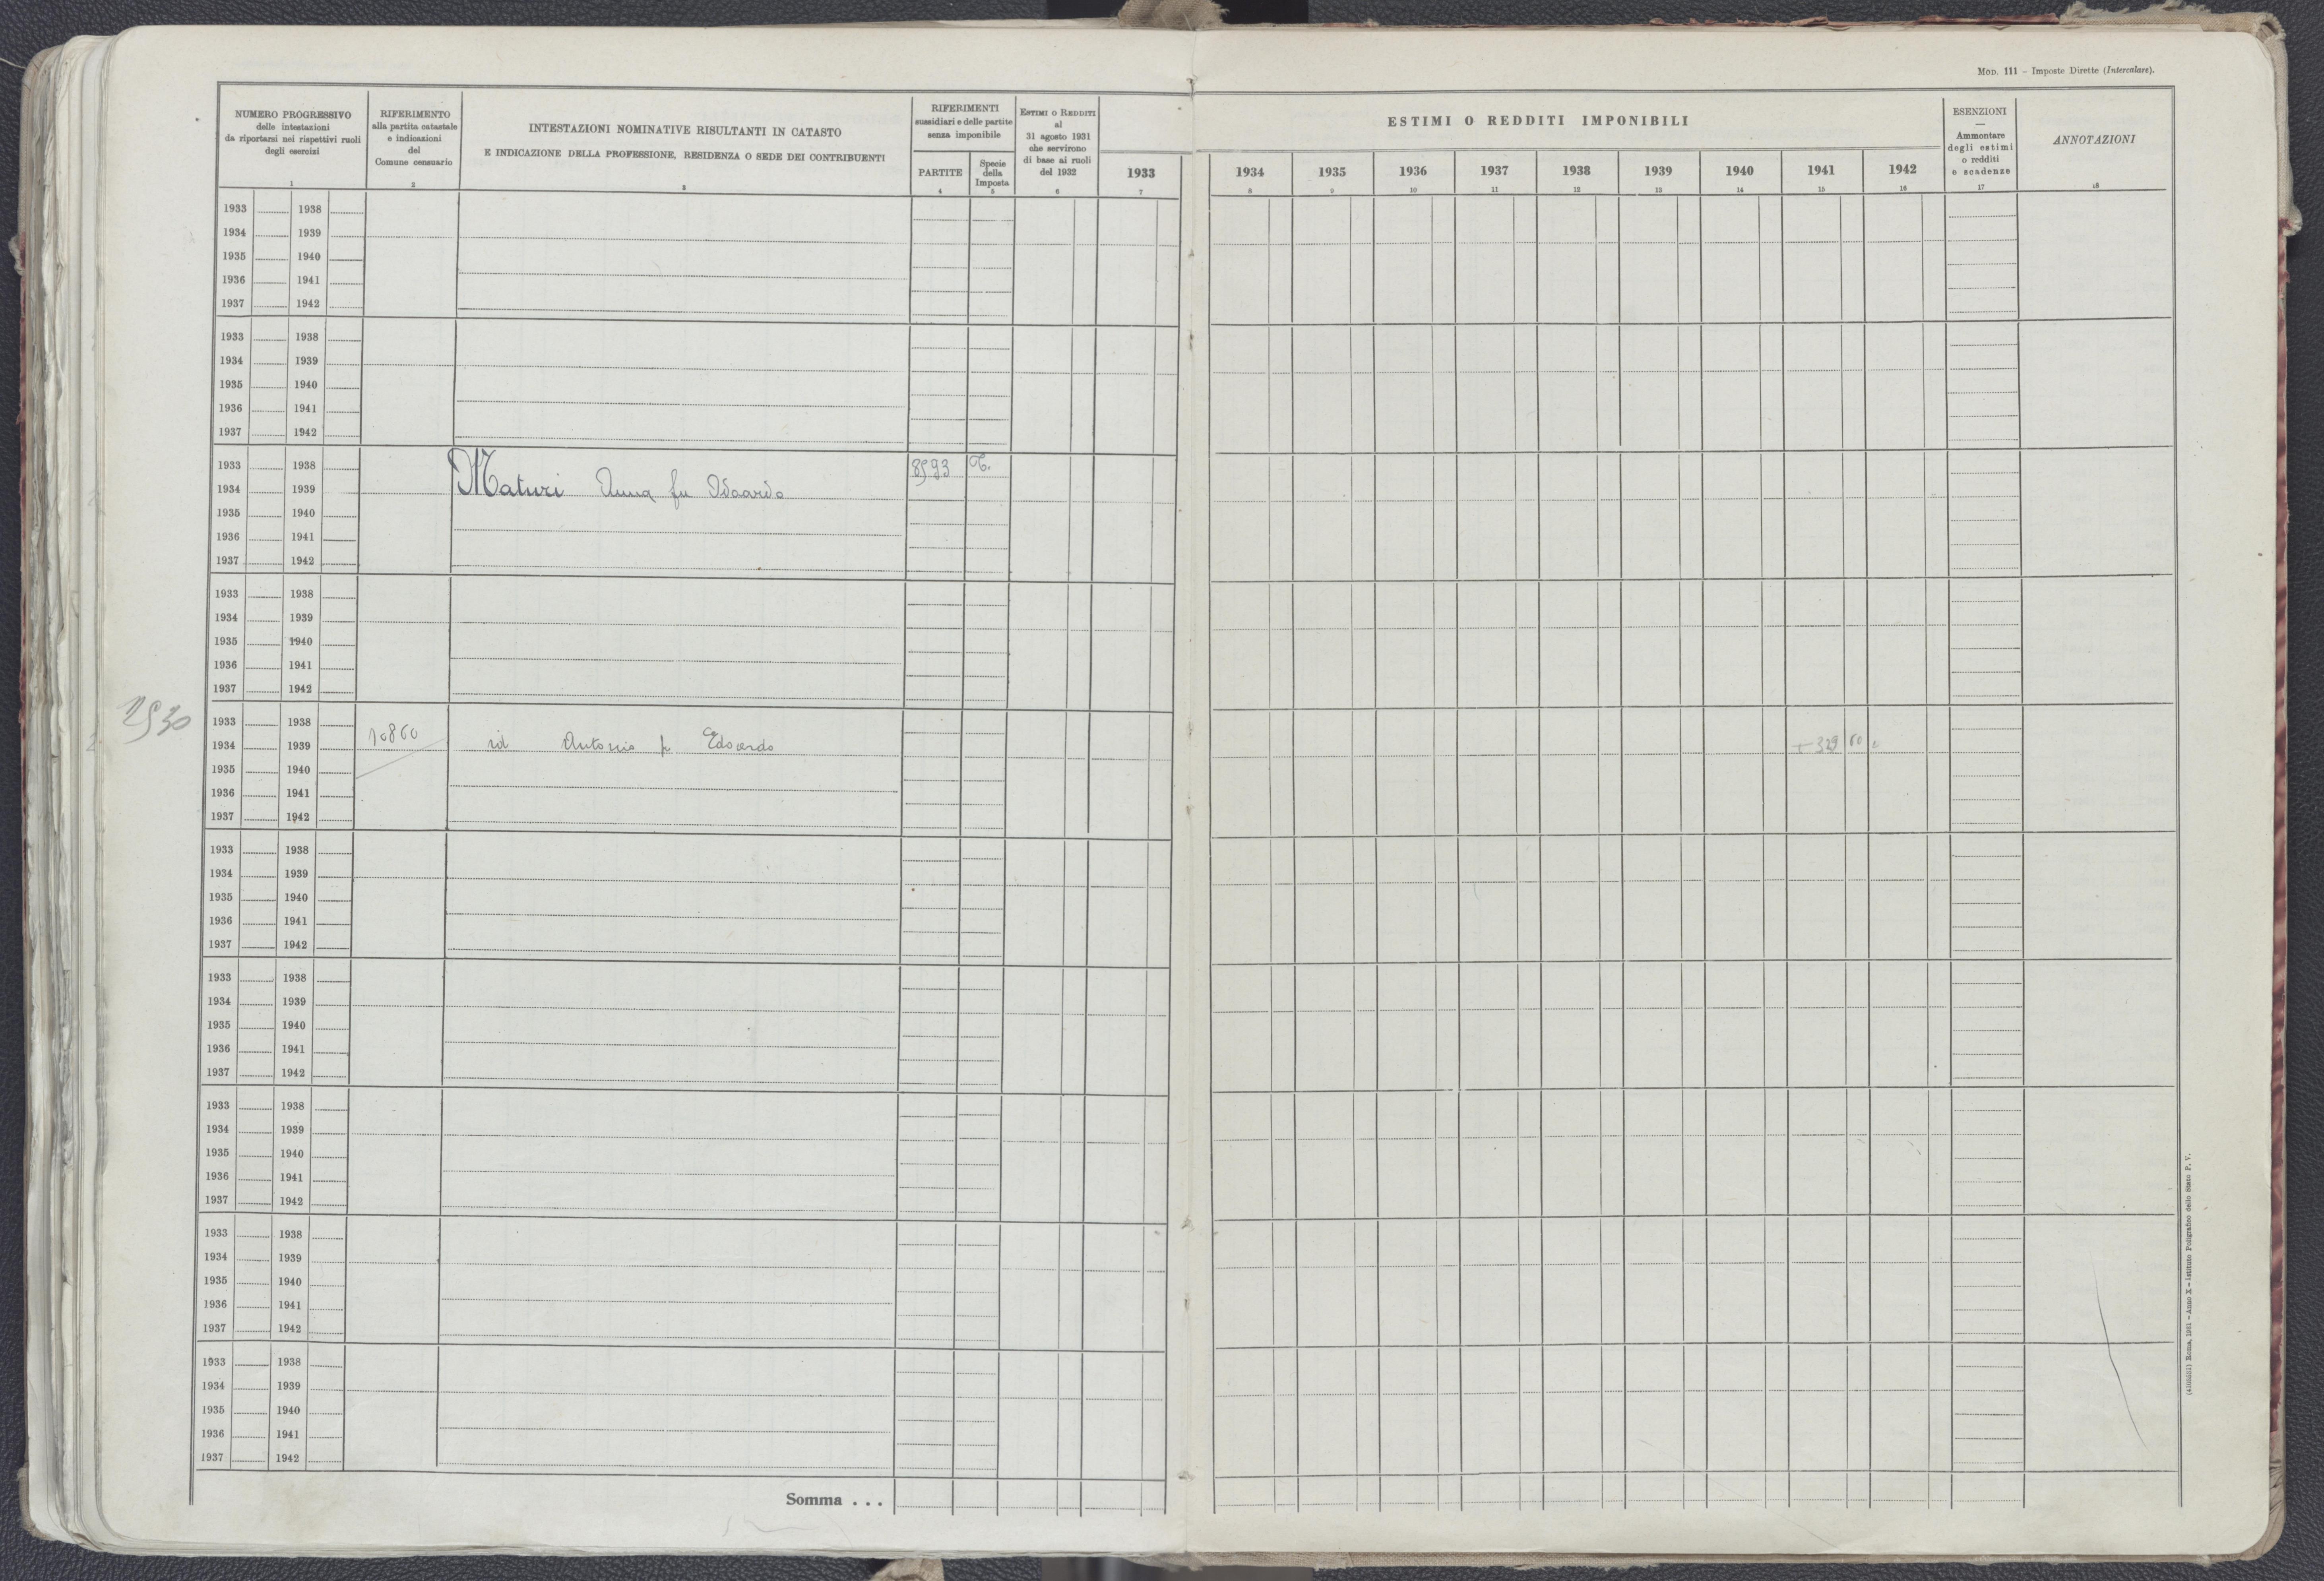 MOD. 111 – Imposte Dirette (Intercalare).
NUMERO PROGRESSIVO
delle intestazioni
da riportarsi nei rispettivi ruoli
degli esercizi
1
RIFERIMENTO
alla partita catastale
e indicazioni
del
Comune censuario
2
INTESTAZIONI NOMINATIVE RISULTANTI IN CATASTO
E INDICAZIONE DELLA PROFESSIONE, RESIDENZA O SEDE DEI CONTRIBUENTI
3
RIFERIMENTI
sussidiari e delle partite
senza imponibile
PARTITE
4
Specie
della
Imposta
5
ESTIMI O REDDITI
al
31 agosto 1931
che servirono
di base ai ruoli
del 1932
6
1933
7
ESTIMI O REDDITI IMPONIBILI
1934 1935 1936 1937 1938 1939 1940 1941 1942
8 9 10 11 12 13 14 15 16
ESENZIONI
—
Ammontare
degli estimi
o redditi
e scadenze
17
ANNOTAZIONI
18
1933 1938
1934 1939
1935 1940
1936 1941
1937 1942
1933 1938
1934 1939
1935 1940
1936 1941
1937 1942
1933 1938 8593 T.
1934 1939 Maturi Anna fu Odoardo
1935 1940
1936 1941
1937 1942
1933 1938
1934 1939
1935 1940
1936 1941
1937 1942
1933 1938
1934 1939 10860 id Antonio fu Edoardo + 329 60
1935 1940
1936 1941
1937 1942
1933 1938
1934 1939
1935 1940
1936 1941
1937 1942
1933 1938
1934 1939
1935 1940
1936 1941
1937 1942
1933 1938
1934 1939
1935 1940
1936 1941
1937 1942
1933 1938
1934 1939
1935 1940
1936 1941
1937 1942
1933 1938
1934 1939
1935 1940
1936 1941
1937 1942
Somma . . .
(4100551) Roma, 1931 – Anno X – Istituto Poligrafico dello Stato P. V.